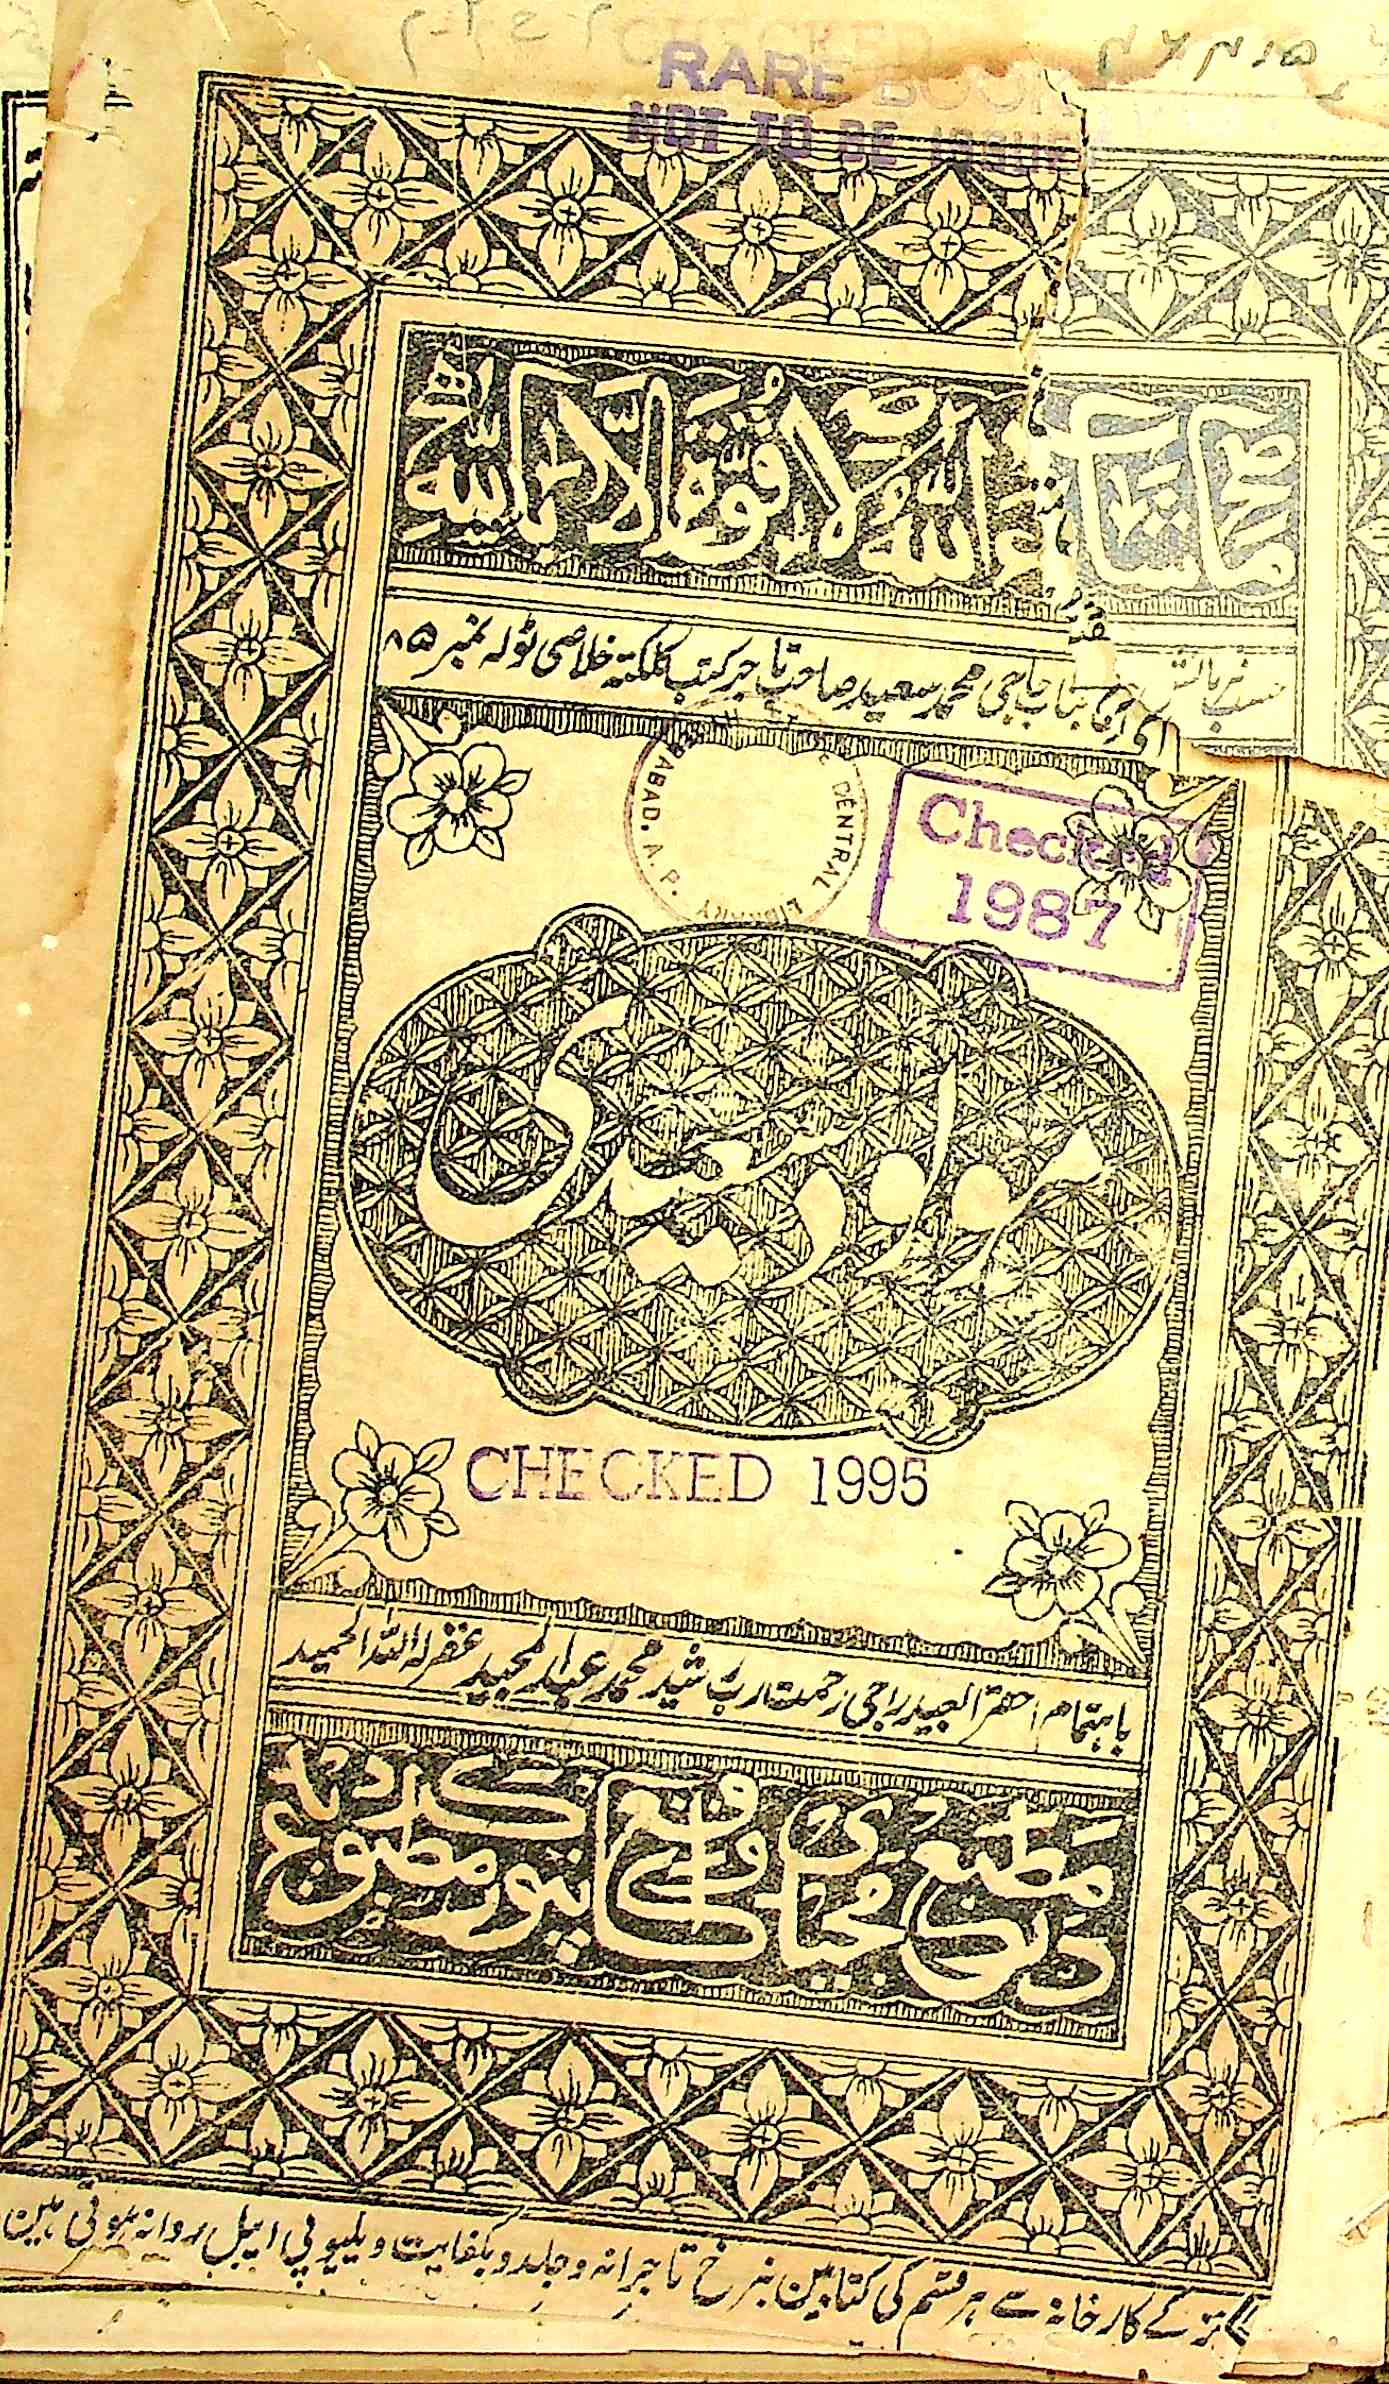 RARE BOOK
NOT TO BE ISSUED
ما شاء اللہ لا قوۃ الا باللہ
حسب فرمائش جناب حاجی محمد سعید صاحب تاجر کتب کلکتہ خلاصی ٹولہ نمبر ۸۵
CENTRAL LIBRARY
ABAD. A. P.
Checked
1987
CHECKED 1995
باہتمام احقر العبید راجی رحمت رب شید محمد عبد المجید غفر لہ اللہ الحمید
در مطبع مجیدی واقع کانپور مطبوع کردید
کے کارخانہ سے ہر قسم کی کتابین بنرخ تاجرانہ وجلد وبکفایت ویلیو پی ایبل روانہ ہوتی ہین